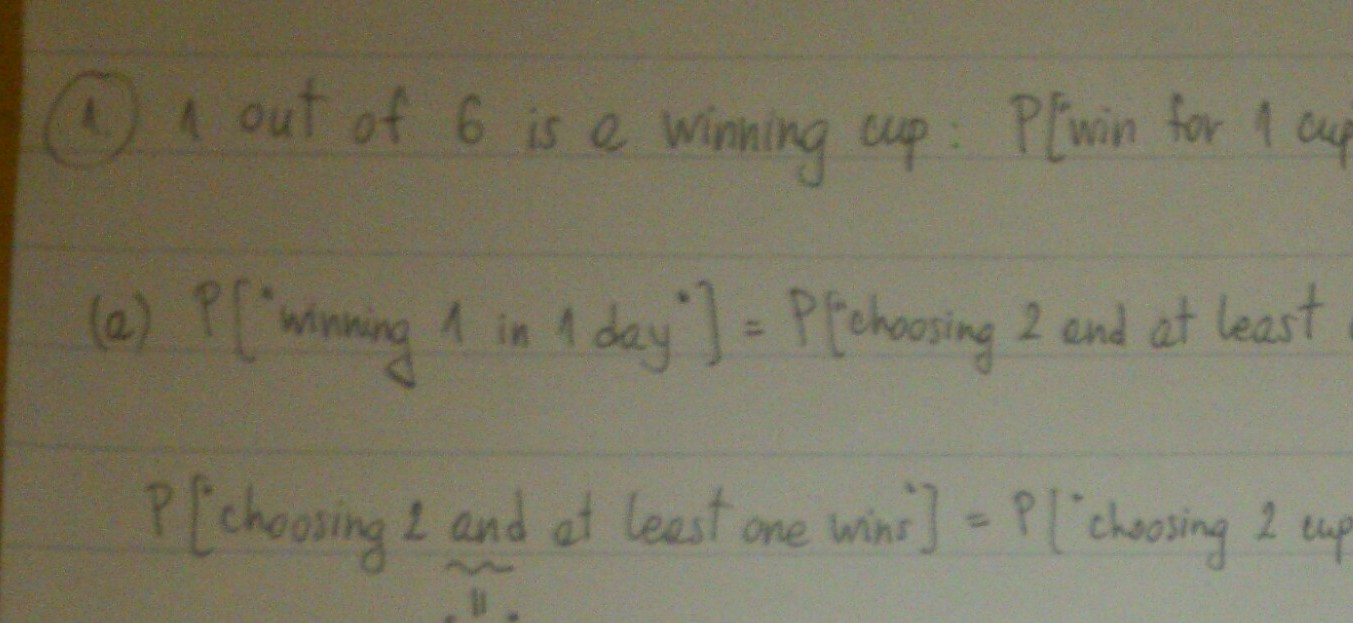 1. 1 out of 6 is a winning cup: P["win for 1 cup
(a) P["winning 1 in 1 day"] = P["choosing 2 and at least
P["choosing 2 and at least one wins"] = P["choosing 2 cup
"